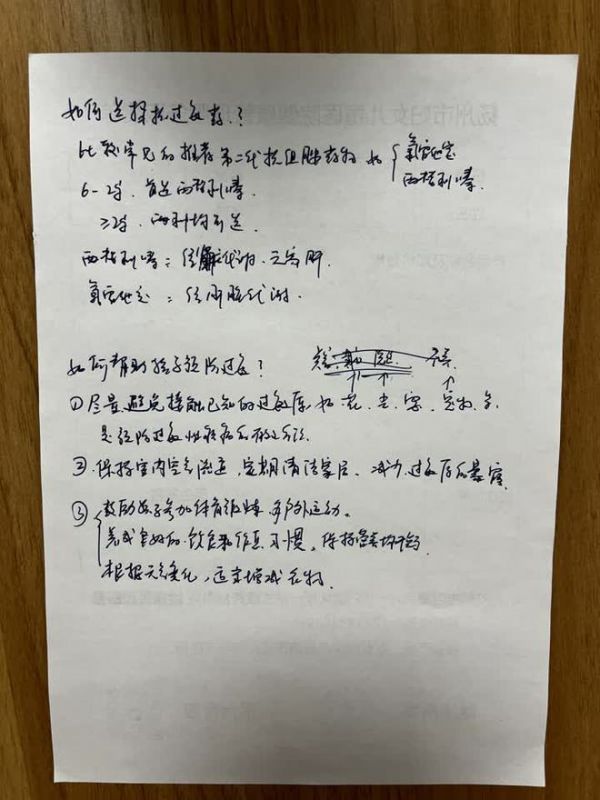 如何选择抗过敏药？
比较常见的推荐第二代抗组胺药物 如 氯雷他定
西替利嗪
6-2岁. 首选西替利嗪.
≥2岁. 两种均可选
西替利嗪： 经肾脏代谢.
氯雷他定 ： 经肝脏代谢.
如何帮助孩子预防过敏？
① 尽量避免接触已知的过敏原 如 花. 尘. 宠物 等
是预防过敏性疾病的有效方法.
② 保持室内空气流通, 定期清洁家居. 减少过敏原的暴露
③ 鼓励孩子参加体育锻炼. 多户外运动.
养成良好的饮食和作息习惯, 保持营养均衡
根据天气变化, 适当增减衣物.